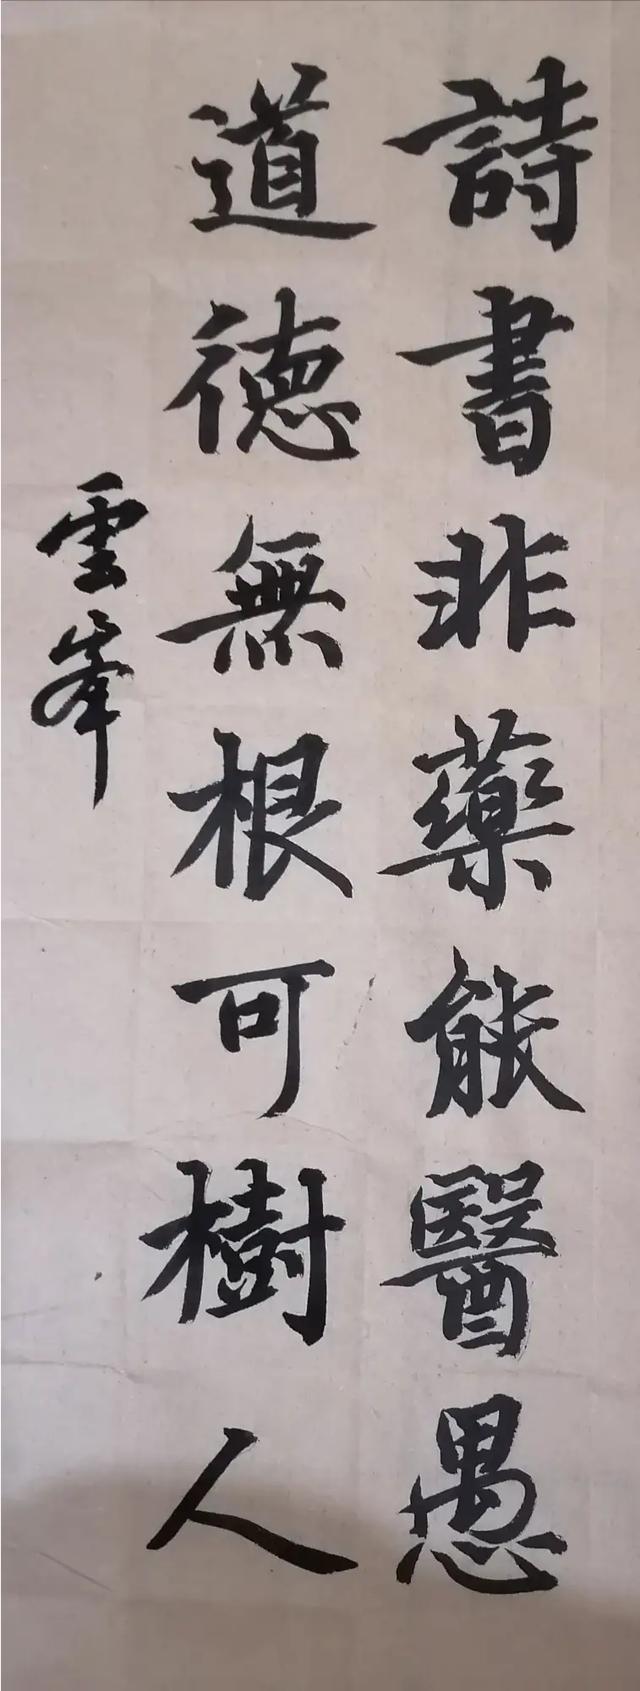 詩書非藥能醫愚
道德無根可樹人
雲峯